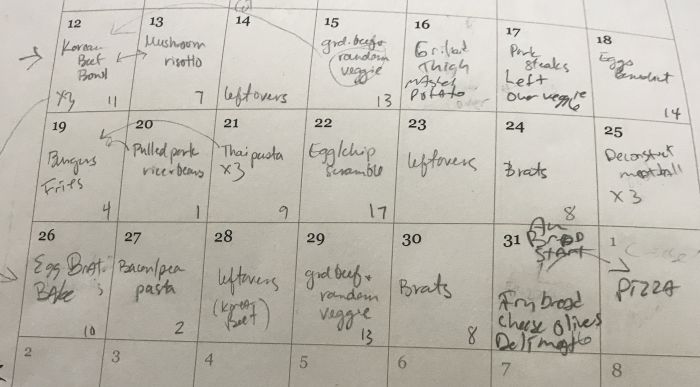 12
Korean
Beef
Bowl
x3
11
13
Mushroom
risotto
7
14
leftovers
15
grd. beef +
random
veggie
13
16
Thigh
Potato
17
Pork
Steaks
Left
over veggie
18
Eggs
14
19
Burgers
Fries
4
20
Pulled pork
rice + beans
1
21
Thai pasta
x3
9
22
Egg/chip
Scramble
17
23
leftovers
24
Brats
8
25
Deconstruct
meatball
x3
26
Egg Brat
Bake
10
27
Bacon/pea
pasta
2
28
leftovers
(Korean
Beef)
29
grd beef +
random
veggie
13
30
Brats
8
31
BREAD
START
Fry bread
Cheese Olives
Deli meats
1
PIZZA
2
3
4
5
6
7
8